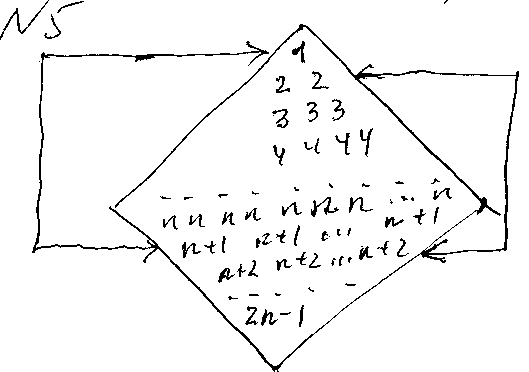 N5
1
2 2
3 3 3
4 4 4 4
n n n n n n n ... n
n+1 n+1 ... n+1
n+2 n+2 ... n+2
2n-1